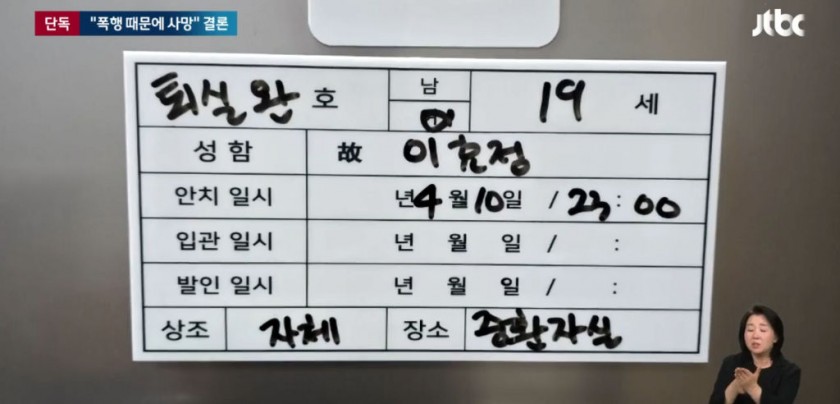 단독 "폭행 때문에 사망" 결론
jtbc
퇴실완 호 남 여 19 세
성함 故 이효정
안치 일시 년 4 월 10 일 / 23 : 00
입관 일시 년 월 일 / :
발인 일시 년 월 일 / :
상조 자체 장소 중환자실